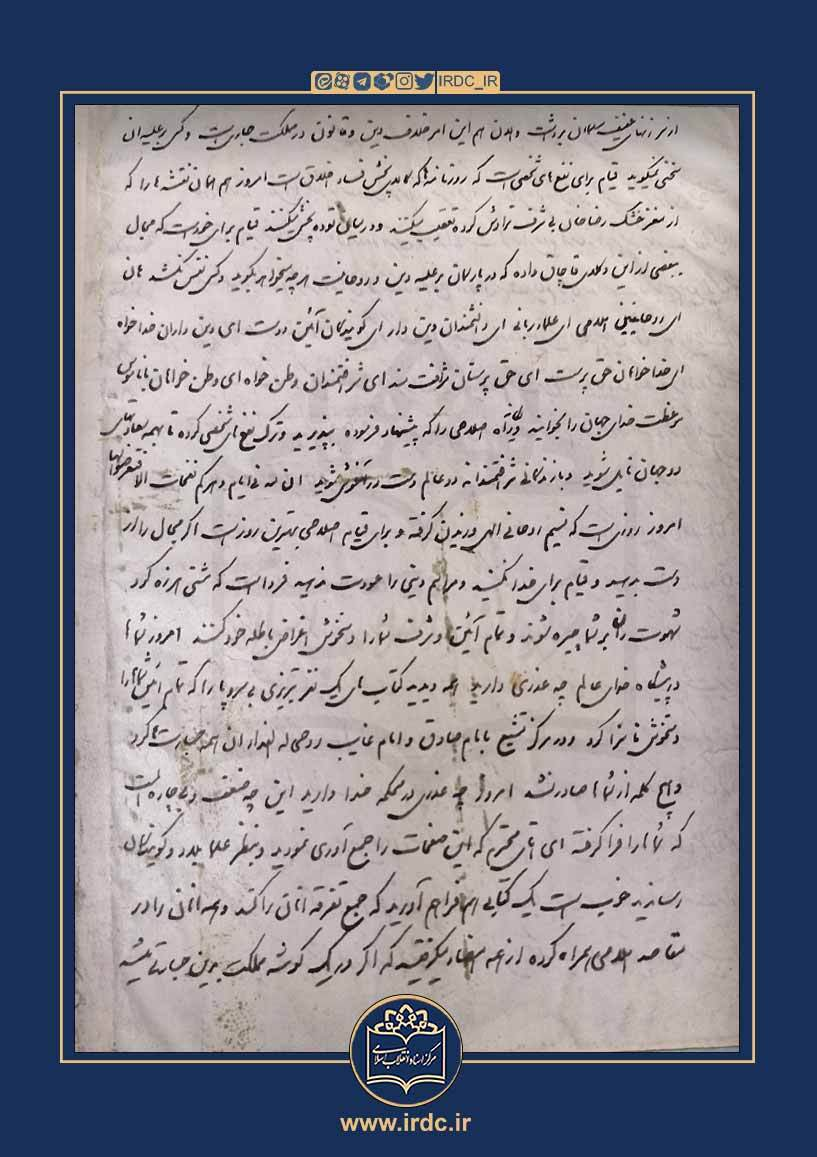 IRDC_IR
از سر زنهای عفیف مسلمان برداشت و الان هم این امر خلاف دین و قانون در مملکت جاری است و کسی بر علیه آن
سخنی نمیگوید قیام برای نفع‌های شخصی است که روزنامه‌ها که کالای پخش فساد اخلاق است امروز هم همان نقشه‌ها را که
از مغز خشک رضاخان بی شرف تراوش کرده تعقیب میکنند و در میان توده پخش میکنند قیام برای خود است که مجال
ببعضی از این وکلای قاچاق داده که در پارلمان بر علیه دین و روحانیت هر چه میخواهد بگوید و کسی نفس نکشد هان
ای روحانیین اسلامی ای علماء ربانی ای دانشمندان دین دار ای گویندگان آئین دوست ای دین داران خدا خواه
ای خدا خواهان حق پرست ای حق پرستان شرافت‌مند ای شرافتمندان وطن خواه ای وطن خواهان باناموس
موعظت خدای جهان را بخوانید و یگانه راه اصلاحی را که پیشنهاد فرموده بپذیرید و ترک نفع‌های شخصی کرده تا بهمه سعادتهای
دو جهان نایل شوید و با زندگانی شرافتمندانه دو عالم دست در آغوش شوید ان لله فی ایام دهرکم نفحات الا فتعرضوا لها
امروز روزی است که نسیم روحانی الهی وزیدن گرفته و برای قیام اصلاحی بهترین روز است اگر مجال را از
دست بدهید و قیام برای خدا نکنید و مراسم دینی را عودت ندهید فردا است که مشتی هرزه گرد
شهوت ران بر شما چیره شوند و تمام آئین و شرف شما را دستخوش اغراض باطله خود کنند امروز شماها
در پیشگاه خدای عالم چه عذری دارید همه دیدید کتاب‌های یک نفر تبریزی بی سر و پا را که تمام آئین شماها را
دستخوش ناسزا کرد و در مرکز تشیع بامام صادق و امام غایب روحی له الفدا آن همه جسارت‌ها کرد
و هیچ کلمه از شماها صادر نشد امروز چه عذری در محکمه خدا دارید این چه ضعف و بیچاره‌گی است
که شماها را فرا گرفته ای آقای محترم که این صفحات را جمع آوری نمودید و بنظر علماء بلاد و گویندگان
رساندید خوب است یک کتابی هم فراهم آورید که جمع تفرقه آنان را کند و همه آنان را در
مقاصد اسلامی همراه کرده از همه امضاء میگرفتید که اگر در یک گوشه مملکت بدین جسارتی میشد
مرکز اسناد انقلاب اسلامی
www.irdc.ir